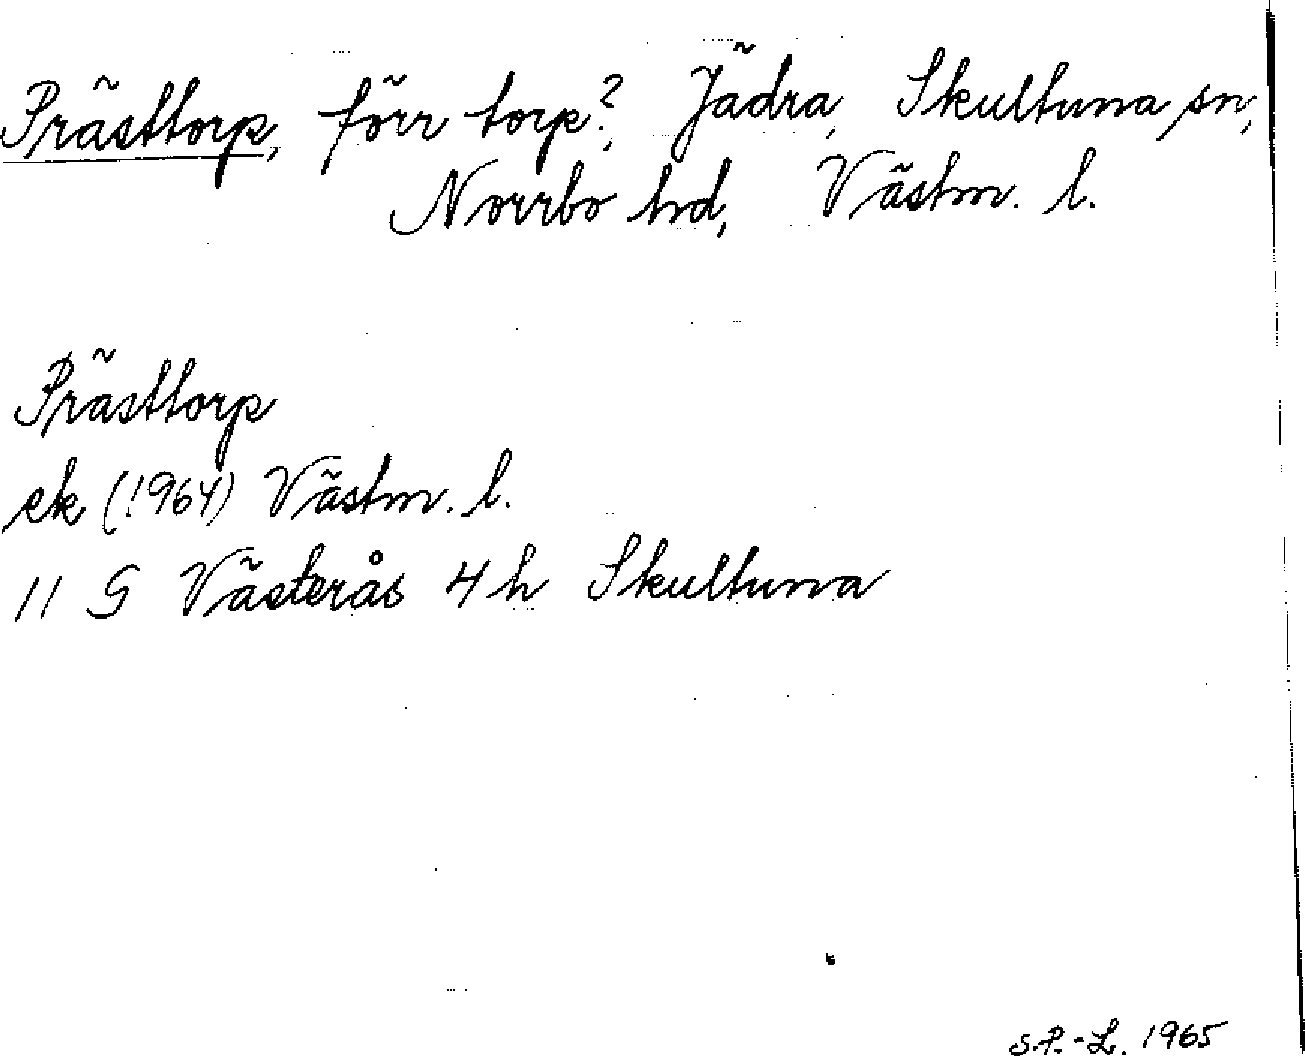 Prästtorp, förr torp?, Jädra, Skultuna sn,
Norrbo hd, Västm. l.
Prästtorp
ek (1964) Västm. l.
11 G Västerås 4 h Skultuna
S.P.-L. 1965